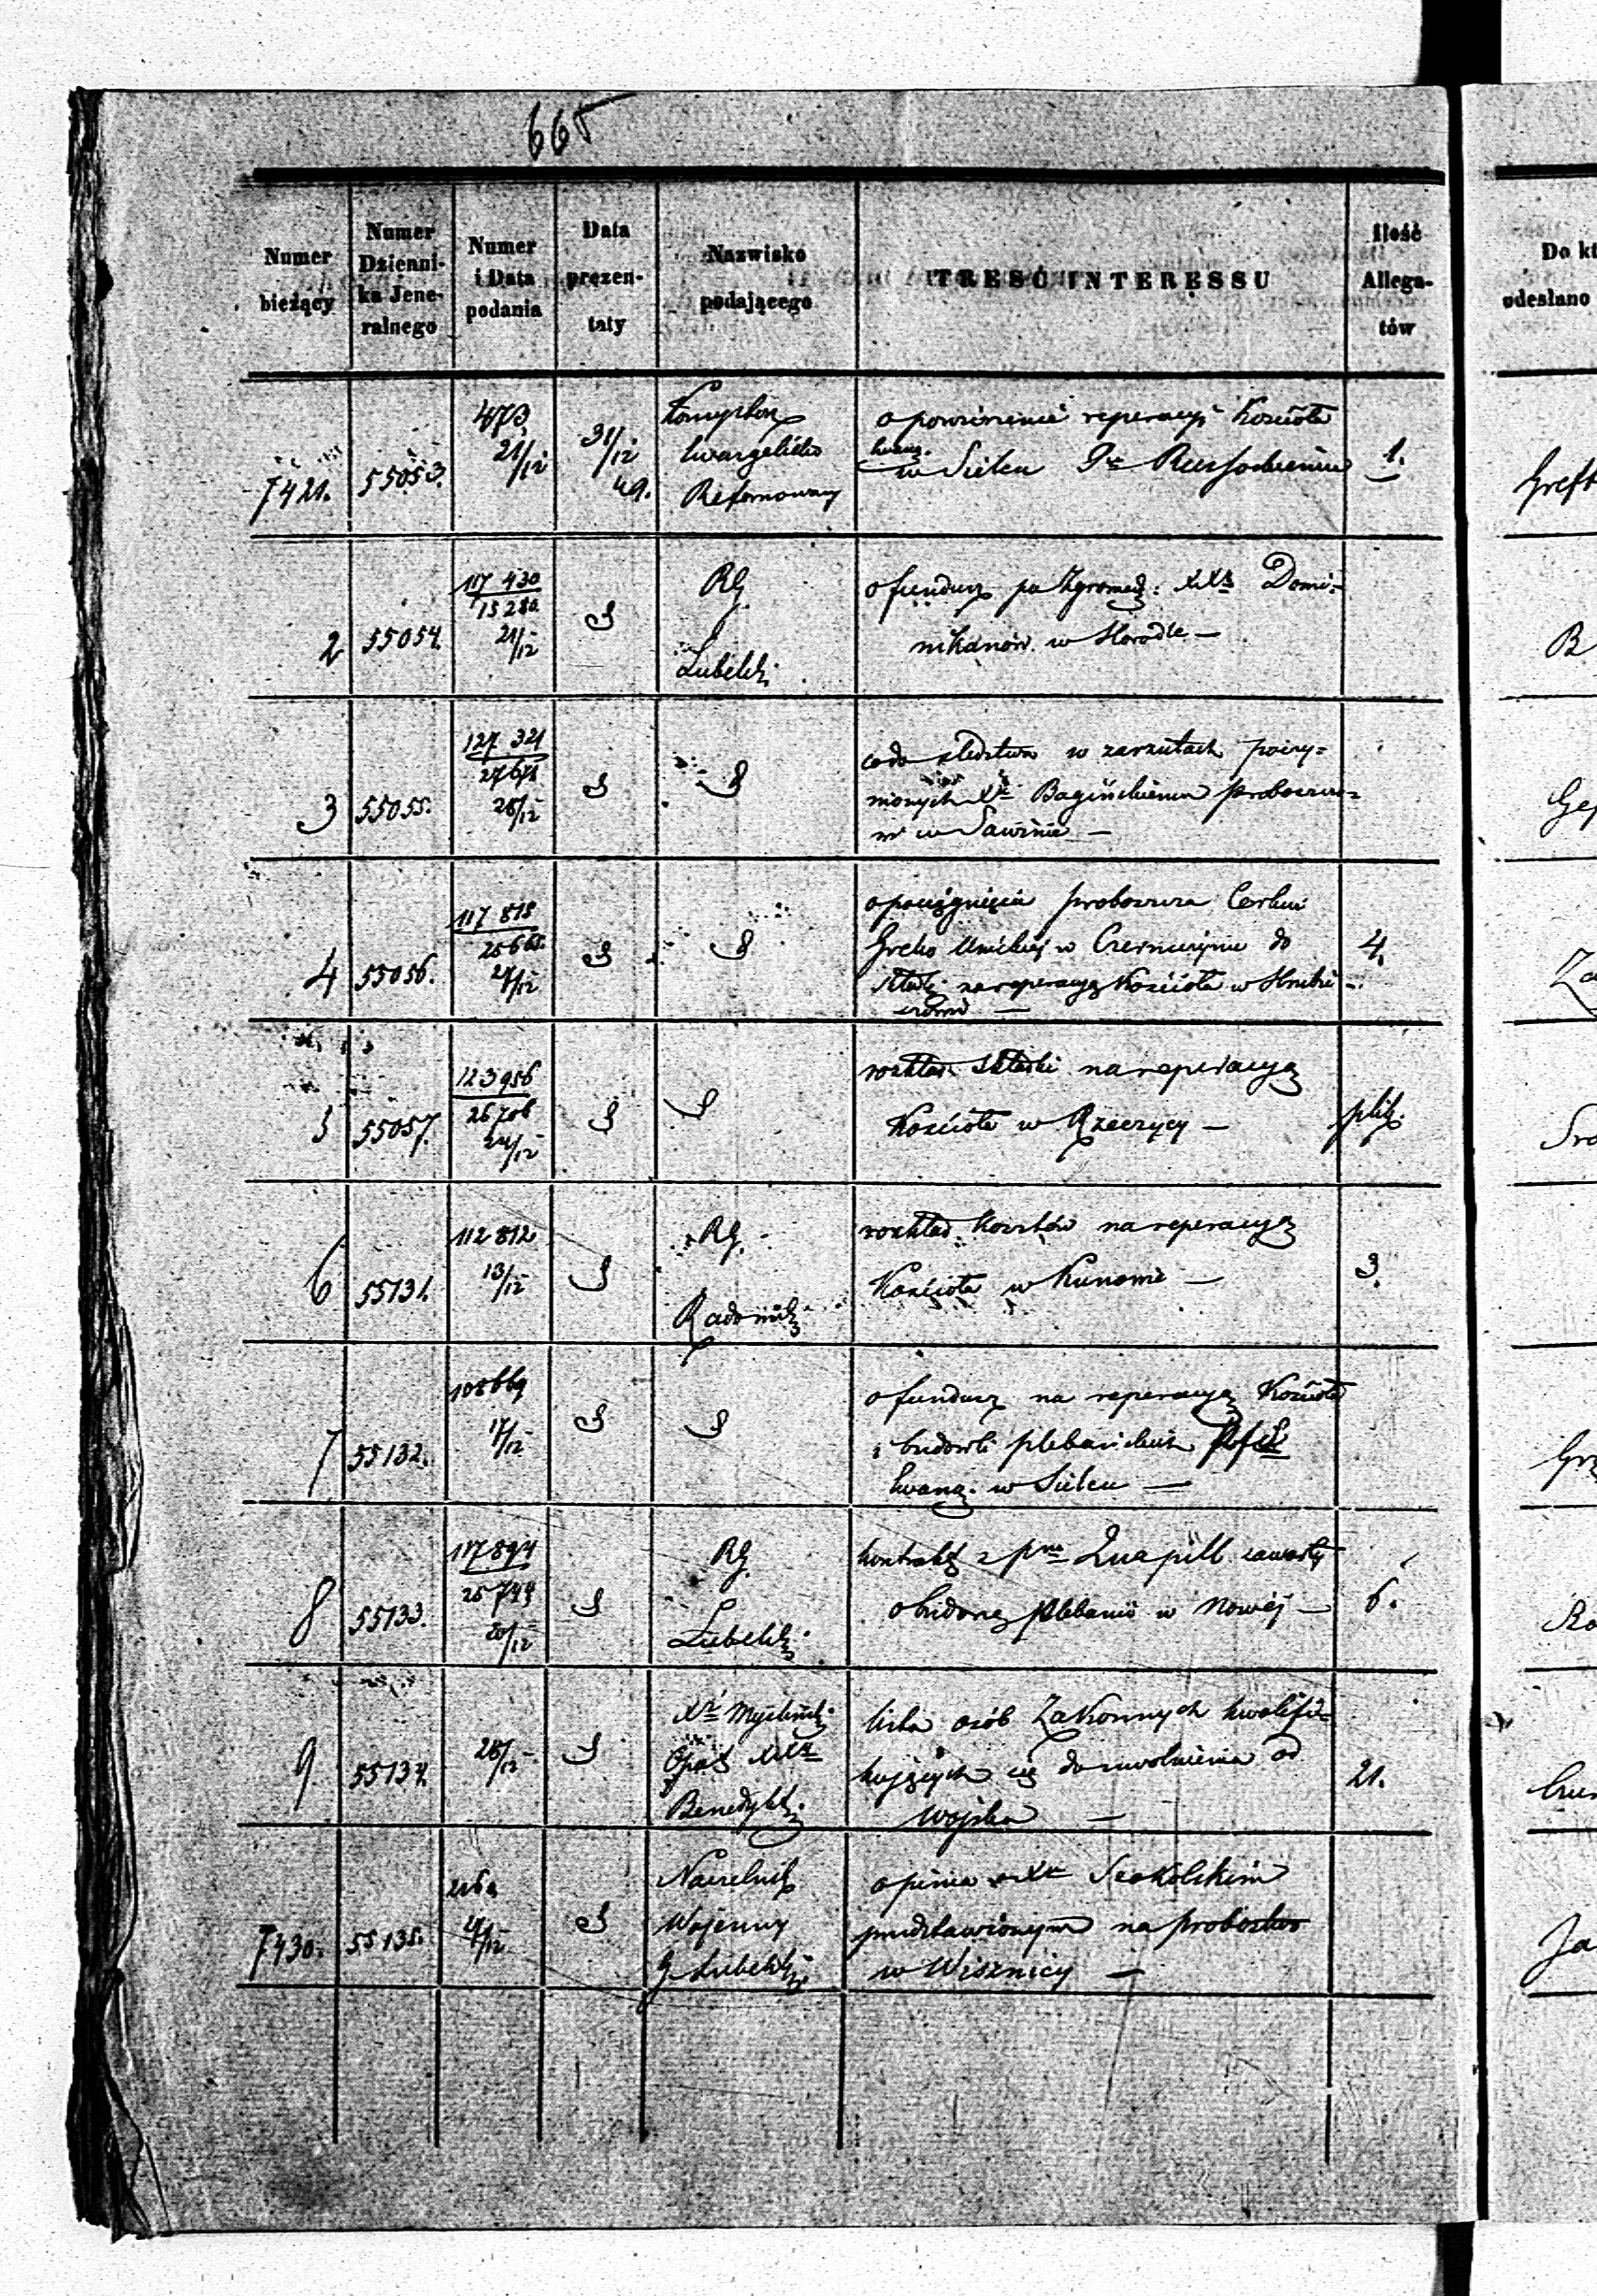 665
Numer bieżący
Numer Dzienni-ka Jene-ralnego
Numer i Data podania
Data prezen-taty
Nazwisko podającego
TREŚĆ INTERESSU
Ilość Allega-tów
Do
odesłano
7421.
55053.
473
21/12
31/12
49.
Ewangelicko
Reformowany
o powierzenie reperacyi Kościoła
Ewang.
w Sielcu
1.
2
55054.
117 430
15280
21/12
RG.
Lubelski
o fundusz po Zgromadz: XX Domi-
nikanów w Horodle —
B
3
55055.
127 321
27671
28/12
co do śledztwa w zarzutach poczy-
nionych Xu Bagińskiemu proboszczo-
wi w Sawinie —
4
55056.
117 818
25665.
27/12
o pociągnięcia proboszcza Cerkwi
Greko Unickiej w Czerniczynie do
składki na reperacyą Kościoła w Hrubie-
szowie —
4.
5
55057.
123956
26706
24/12
rozkład składki na reperacyą
Kościoła w Rzeczycy —
plik.
6
55131.
112812
13/12
RG.
Radomski
rozkład kosztów na reperacyą
Kościoła w Kunowie —
3.
7
55132.
108669
17/12
o fundusz na reperacyą Kościoła
i budowli plebańskich
Ewang. w Sielcu —
8
55133.
117894
25744
20/12
RG.
Lubelski
kontrakt z Pnem Quapill zawarty
o budowę plebanii w Nowej —
6.
9
55134.
28/12
Opat XX
Benedykt.
lista osób Zakonnych kwalifi-
kujących się do uwolnienia od
wojska —
21.
7430.
55135.
Naczelnik
Wojenny
G. Lubelskiej
opinia o Xu
przedstawionym na probostwo
w Wisznicy —
Ja